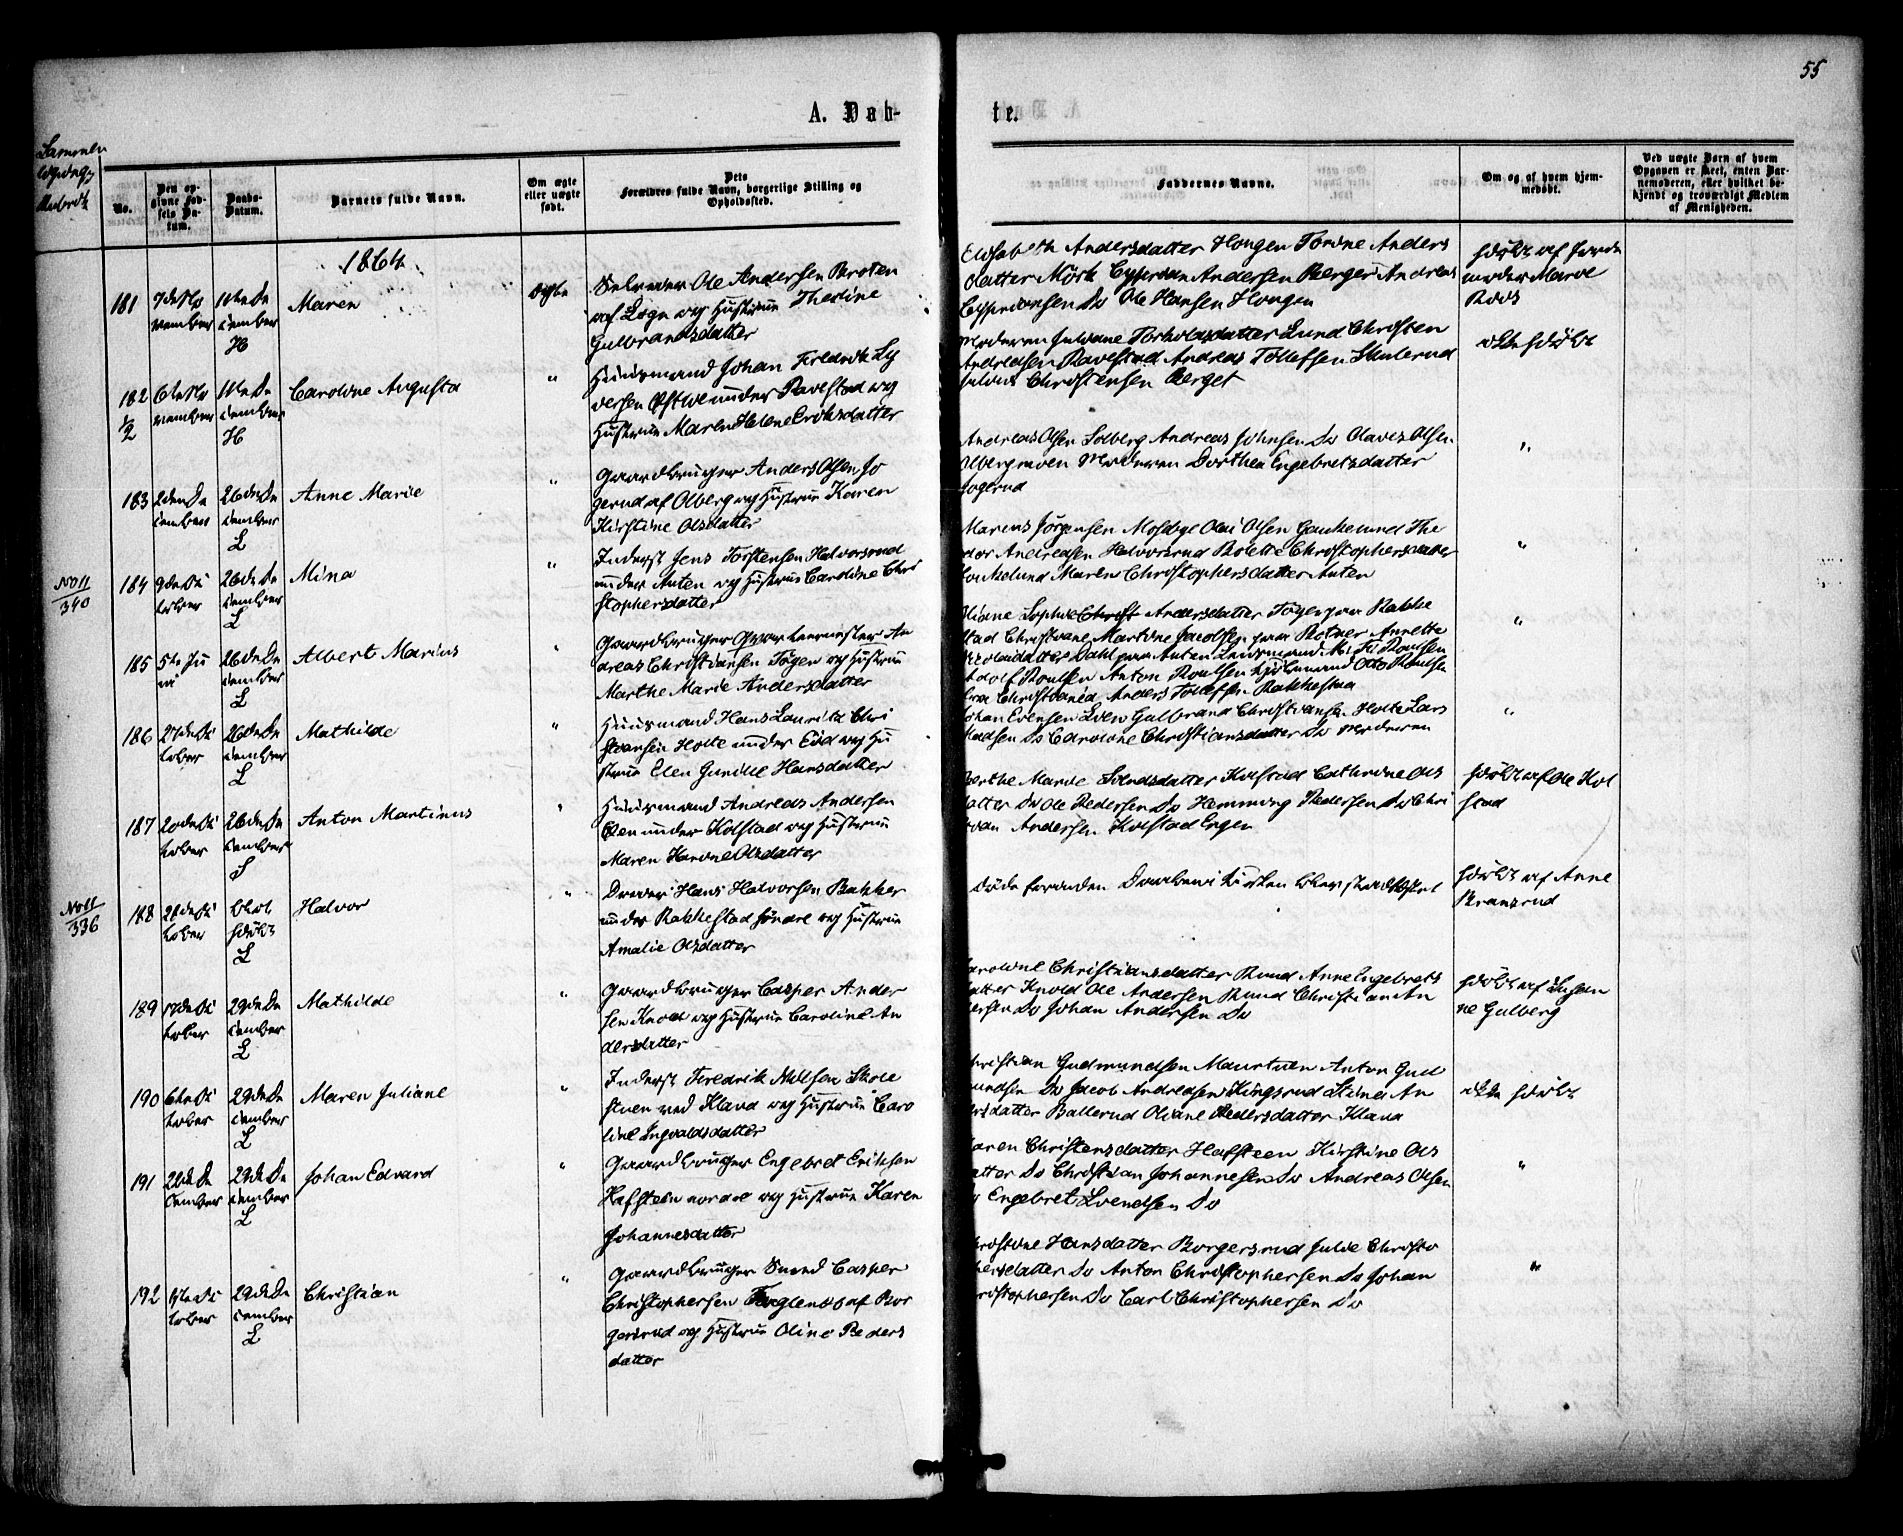 55
A. Døb-
te.
No.
Den opgivne Fødsels Datum.
Daabs-Datum.
Barnets fulde Navn.
Om ægte eller uægte født.
Dets Forældres fulde Navn, borgerlige Stilling og Opholdssted.
Faddernes Navne.
Om og af hvem hjemmedøbt.
Ved uægte Børn af hvem Opgaven er skeet, enten Barnemoderen, eller hvilket bekjendt og troværdigt Medlem af Menigheden.
1864
181
Maren
Ægte
Selveier Ole Andersen Broten
af Løgn og Hustrue Thedine
Gulbrandsdatter
Elisabeth Andersdatter Hougen Torine Anders
datter Mörk Andersen Berger Andreas
Do Ole Hansen Hougen
182
Caroline Augusta
"
Huusmand Johan Fredrik Sy
versen Østbye under Ravestad og
Hustrue Maren Helene Eriksdatter
Moderen Juliane Torkildsdatter Lund Christen
Andreasen Ravestad Andreas Tollefsen Skulerud
Julius Christensen Berget
ikke hjdöbt
183
2den De
cember
26de De
cember
L
Anne Marie
"
Gaardbruger Anders Olsen Jo
gerud af Olberg og Hustrue Karen
Kirstine Olsdatter
Andreas Olsen Solberg Andreas Johnsen Do Olaves Olsen
Olbergmoen Moderen Dorthea Engebretsdatter
Jogerud
"
No 11
340
184
26de De
cember
L
Mina
"
Inderst Jens Torstensen Halvorsrud
under Auten og Hustrue Caroline Chri
stophersdatter
Marens Jörgensen Mosbye Olai Olsen Gaukelund The
dor Andreasen Halvorsrud Bolette Christophersdatter
Goukelund Maren Christophersdatter Auten
"
185
5te Ju
ni
26de De
cember
L
Albert Marius
"
Gaardbruger Qvarteermester An
dreas Christiansen Togen og Hustrue
Marthe Marie Andersdatter
Oliane Sophie Andersdatter Togen paa Rakke
stad Christiane Martine Jacobsen paa Botner Annette
Nicolaidatter Dahl paa Auten Lensmand Poulsen
Adolf Poulsen Anton Poulsen Kjöbmand Otto Poulsen
fra Christiania Anders Tollefsen Rakkestad
"
186
27de Oc
tober
26de De
cember
L
Mathilde
"
Huusmand Hans Lauritz Chri
stiansen Holte under Eid og Hu
strue Elen Gunille Hansdatter
Johan Evensen Lien Gulbrand Christiansen Holte Lars
Madsen Do Caroline Christiansdatter Do Moderen
"
187
20de Oc
tober
26de De
cember
S
Anton Martinus
"
Huusmand Andreas Andersen
Eien under Kolstad og Hustrue
Maren Karine Olsdatter
Berthe Marie Svendsdatter Kolstad Cathrine Ols
datter Do Ole Pedersen Do Hemming Pedersen Do Chri
stian Andersen Kolstad Engen
hjdöbt af Ole Kol
stad
No 11
336
188
28de Oc
tober
L
Halvor
"
Hans Halvorsen Bakker
under Rakkestad söndre og Hustrue
Amalie Olsdatter
döde forinden Daaben i Kirken
hjdöbt af Anne
Bransrud
189
17de Oc
tober
29de De
cember
L
Mathilde
"
Gaardbruger Casper Ander
sen Knold og Hustrue Caroline An
dersdatter
Caroline Christiansdatter Rud Anne Engebrets
datter Knold Ole Andersen Ruud Christian An
dersen Do Johan Andersen Do
hjdöbt af Susan
ne Gulberg
190
6te Oc
tober
29de De
cember
L
Maren Juliane
"
Inderst Fredrik Nilsen Skole
stuen ved Klava og Hustrue Caro
line Ingvaldsdatter
Christian Gudmundsen Maurtuen Anton Gud
mundsen Do Jacob Andreasen Kingsrud Stine An
dersdatter Ballerud Oliane Pedersdatter Klava
ikke hjdöbt
191
22de De
cember
29de De
cember
L
Johan Edvard
"
Gaardbruger Engebret Eriksen
Hafsteen nordre og Hustrue Karen
Johannesdatter
Karen Christensdatter Hafsteen Kirstine Ols
datter Do Christian Johannesen Do Andreas Olsen
Do Engebret Svendsen Do
"
192
29de De
cember
L
Christian
"
Gaardbruger Svend Casper
Christophersen Fuglen af Bor
gersrud og Hustrue Oline Peders
datter
Christine Hansdatter Borgersrud Julie Christo
phersdatter Do Anton Christophersen Do Johan
Christophersen Do Carl Christophersen Do
"